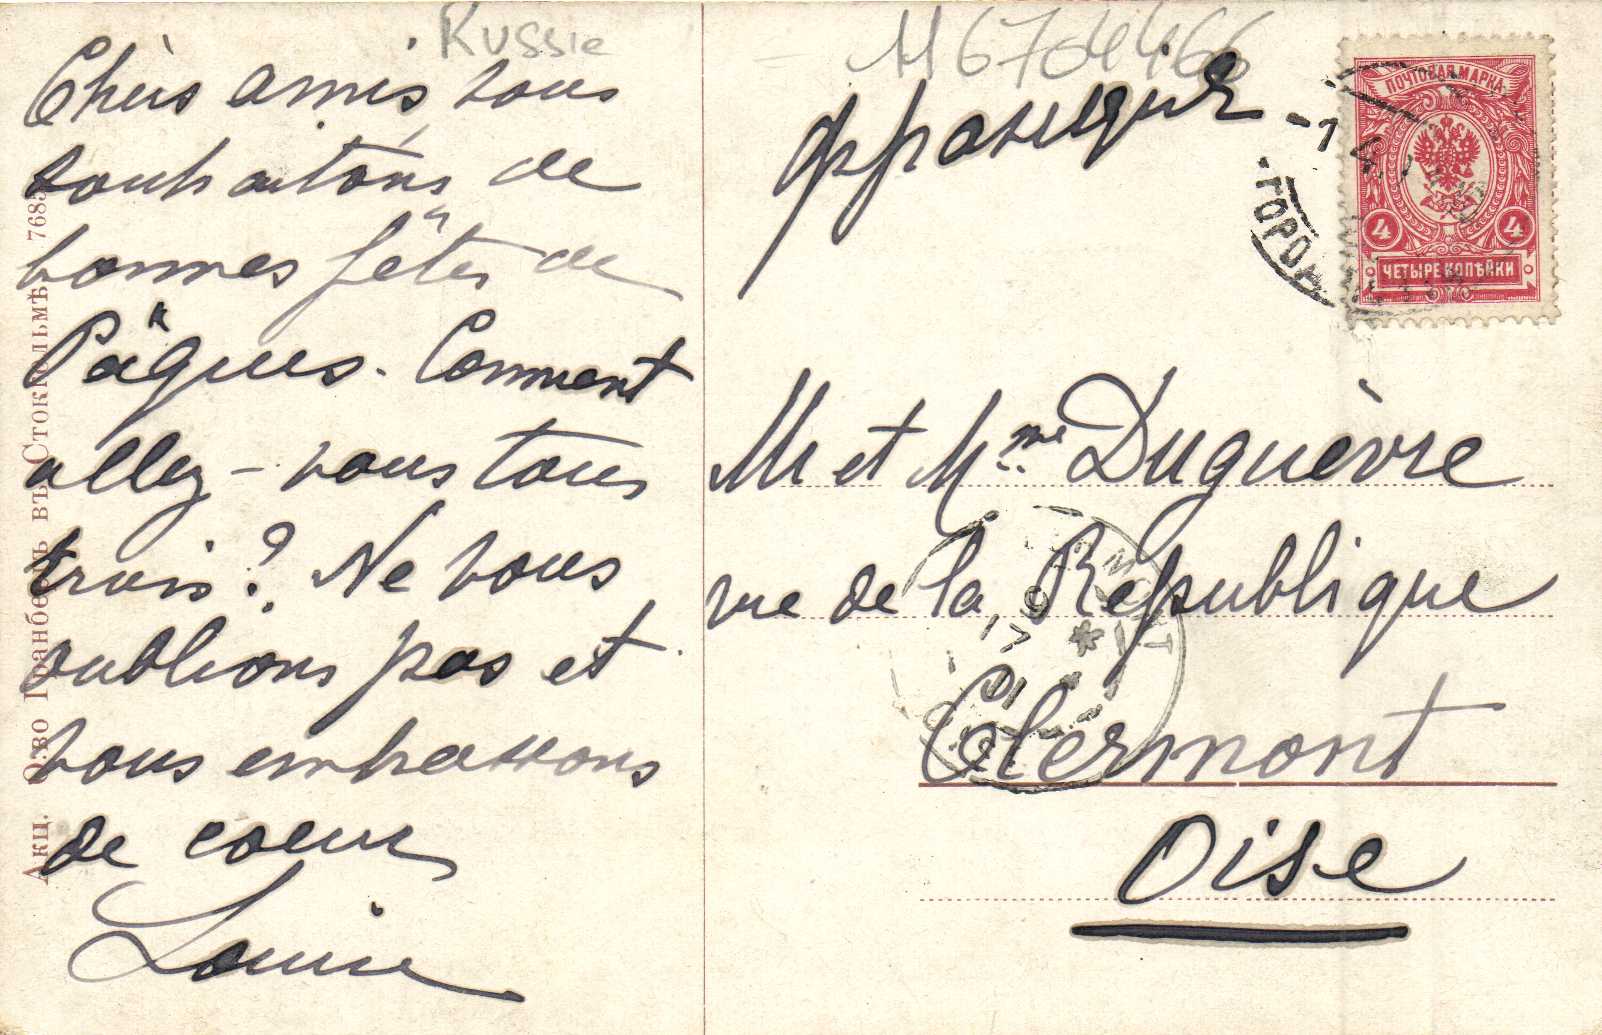 Russie
Chers amis, vous
souhaitons de
bonnes fêtes de
Pâques. Comment
allez-vous tous
trois? Ne vous
oublions pas et
vous embrassons
de coeur
Louise
Акц. О-во Гранбергъ въ Стокгольмѣ. 7685
M6704466
Франція
ПОЧТОВАЯ МАРКА
4 4
ЧЕТЫРЕ КОПѢЙКИ
-1 4
Mr et Mme Duguèvre
rue de la République
Clermont
Oise